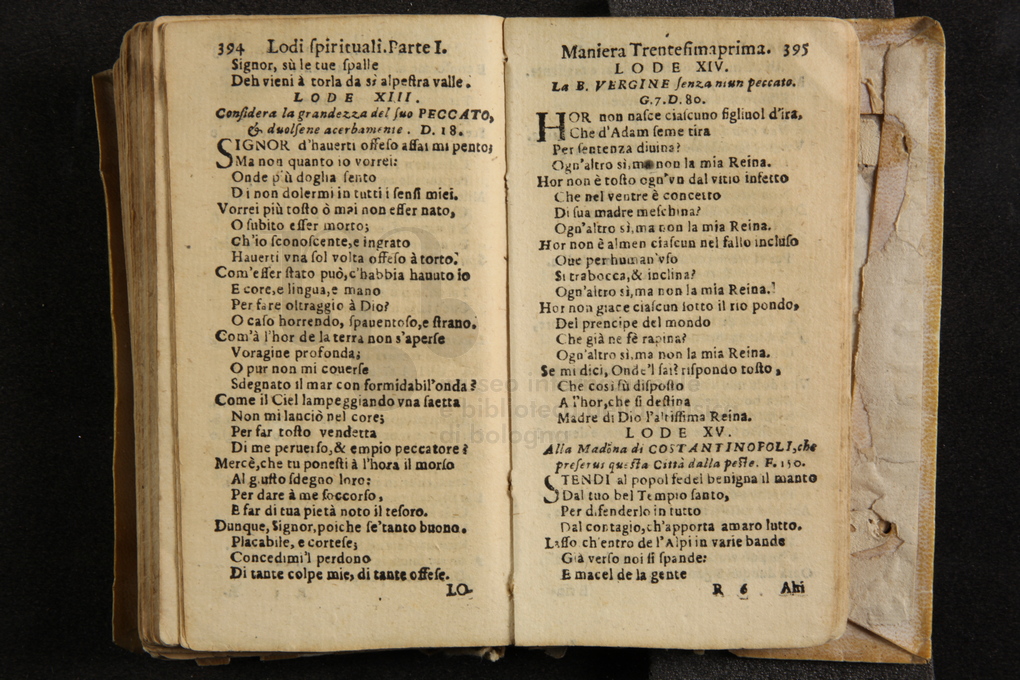 394 Lodi ſpirituali. Parte I.
Signor, sù le tue ſpalle
Deh vieni à torla da sì alpeſtra valle.
LODE XIII.
Conſidera la grandezza del ſuo PECCATO,
& duolſene acerbamente. D. 18.
SIGNOR d'hauerti offeſo aſſai mi pento;
Ma non quanto io vorrei:
Onde più doglia ſento
Di non dolermi in tutti i ſenſi miei.
Vorrei più toſto ò mai non eſſer nato,
O ſubito eſſer morto;
Ch'io ſconoſcente, e ingrato
Hauerti vna ſol volta offeſo à torto.
Com'eſſer ſtato può, c'habbia hauuto io
E core, e lingua, e mano
Per fare oltraggio à Dio?
O caſo horrendo, ſpauentoſo, e ſtrano.
Com'à l'hor de la terra non s'aperſe
Voragine profonda;
O pur non mi couerſe
Sdegnato il mar con formidabil'onda?
Come il Ciel lampeggiando vna ſaetta
Non mi lanciò nel core;
Per far toſto vendetta
Di me peruerſo, & empio peccatore?
Mercè, che tu poneſti à l'hora il morſo
Al giuſto ſdegno loro:
Per dare à me ſoccorſo,
E far di tua pietà noto il teſoro.
Dunque, Signor, poiche ſe'tanto buono.
Placabile, e corteſe;
Concedimi'l perdono
Di tante colpe mie, di tante offeſe.
LO-
Maniera Trenteſimaprima. 395
LODE XIV.
La B. VERGINE ſenza niun peccato.
G. 7. D. 80.
HOR non naſce ciaſcuno figliuol d'ira,
Che d'Adam ſeme tira
Per ſentenza diuina?
Ogn'altro sì, ma non la mia Reina.
Hor non è toſto ogn'vn dal vitio infetto
Che nel ventre è concetto
Di ſua madre meſchina?
Ogn'altro sì, ma non la mia Reina.
Hor non è almen ciaſcun nel fallo incluſo
Oue per human'vſo
Si trabocca, & inclina?
Ogn'altro sì, ma non la mia Reina.
Hor non giace ciaſcun ſotto il rio pondo,
Del prencipe del mondo
Che già ne fè rapina?
Ogn'altro sì, ma non la mia Reina.
Se mi dici, Onde'l ſai? riſpondo toſto,
Che così fù diſpoſto
A l'hor, che ſi deſtina
Madre di Dio l'altiſſima Reina.
LODE XV.
Alla Madōna di COSTANTINOPOLI, che
preſerui queſta Città dalla peſte. F. 150.
STENDI al popol fedel benigna il manto
Dal tuo bel Tempio ſanto,
Per difenderlo in tutto
Dal contagio, ch'apporta amaro lutto.
Laſſo ch'entro de l'Alpi in varie bande
Già verſo noi ſi ſpande:
E macel de la gente
R 6 Ahi